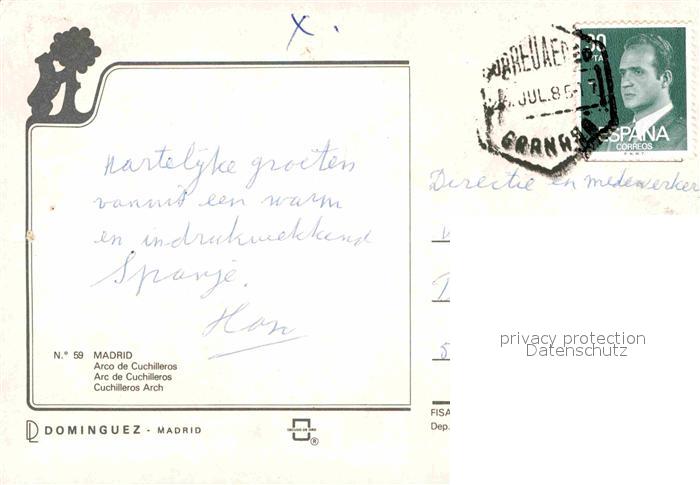 x.
JUL.85-17
GRANADA
PTA
ESPAÑA
CORREOS
F.N.M.T.
Hartelijke groeten
vanuit een warm
en indrukwekkend
Spanje.
Han
Directie en medewerker
N.° 59 MADRID
Arco de Cuchilleros
Arc de Cuchilleros
Cuchilleros Arch
DOMINGUEZ - MADRID
®
FISA
Dep.
privacy protection
Datenschutz